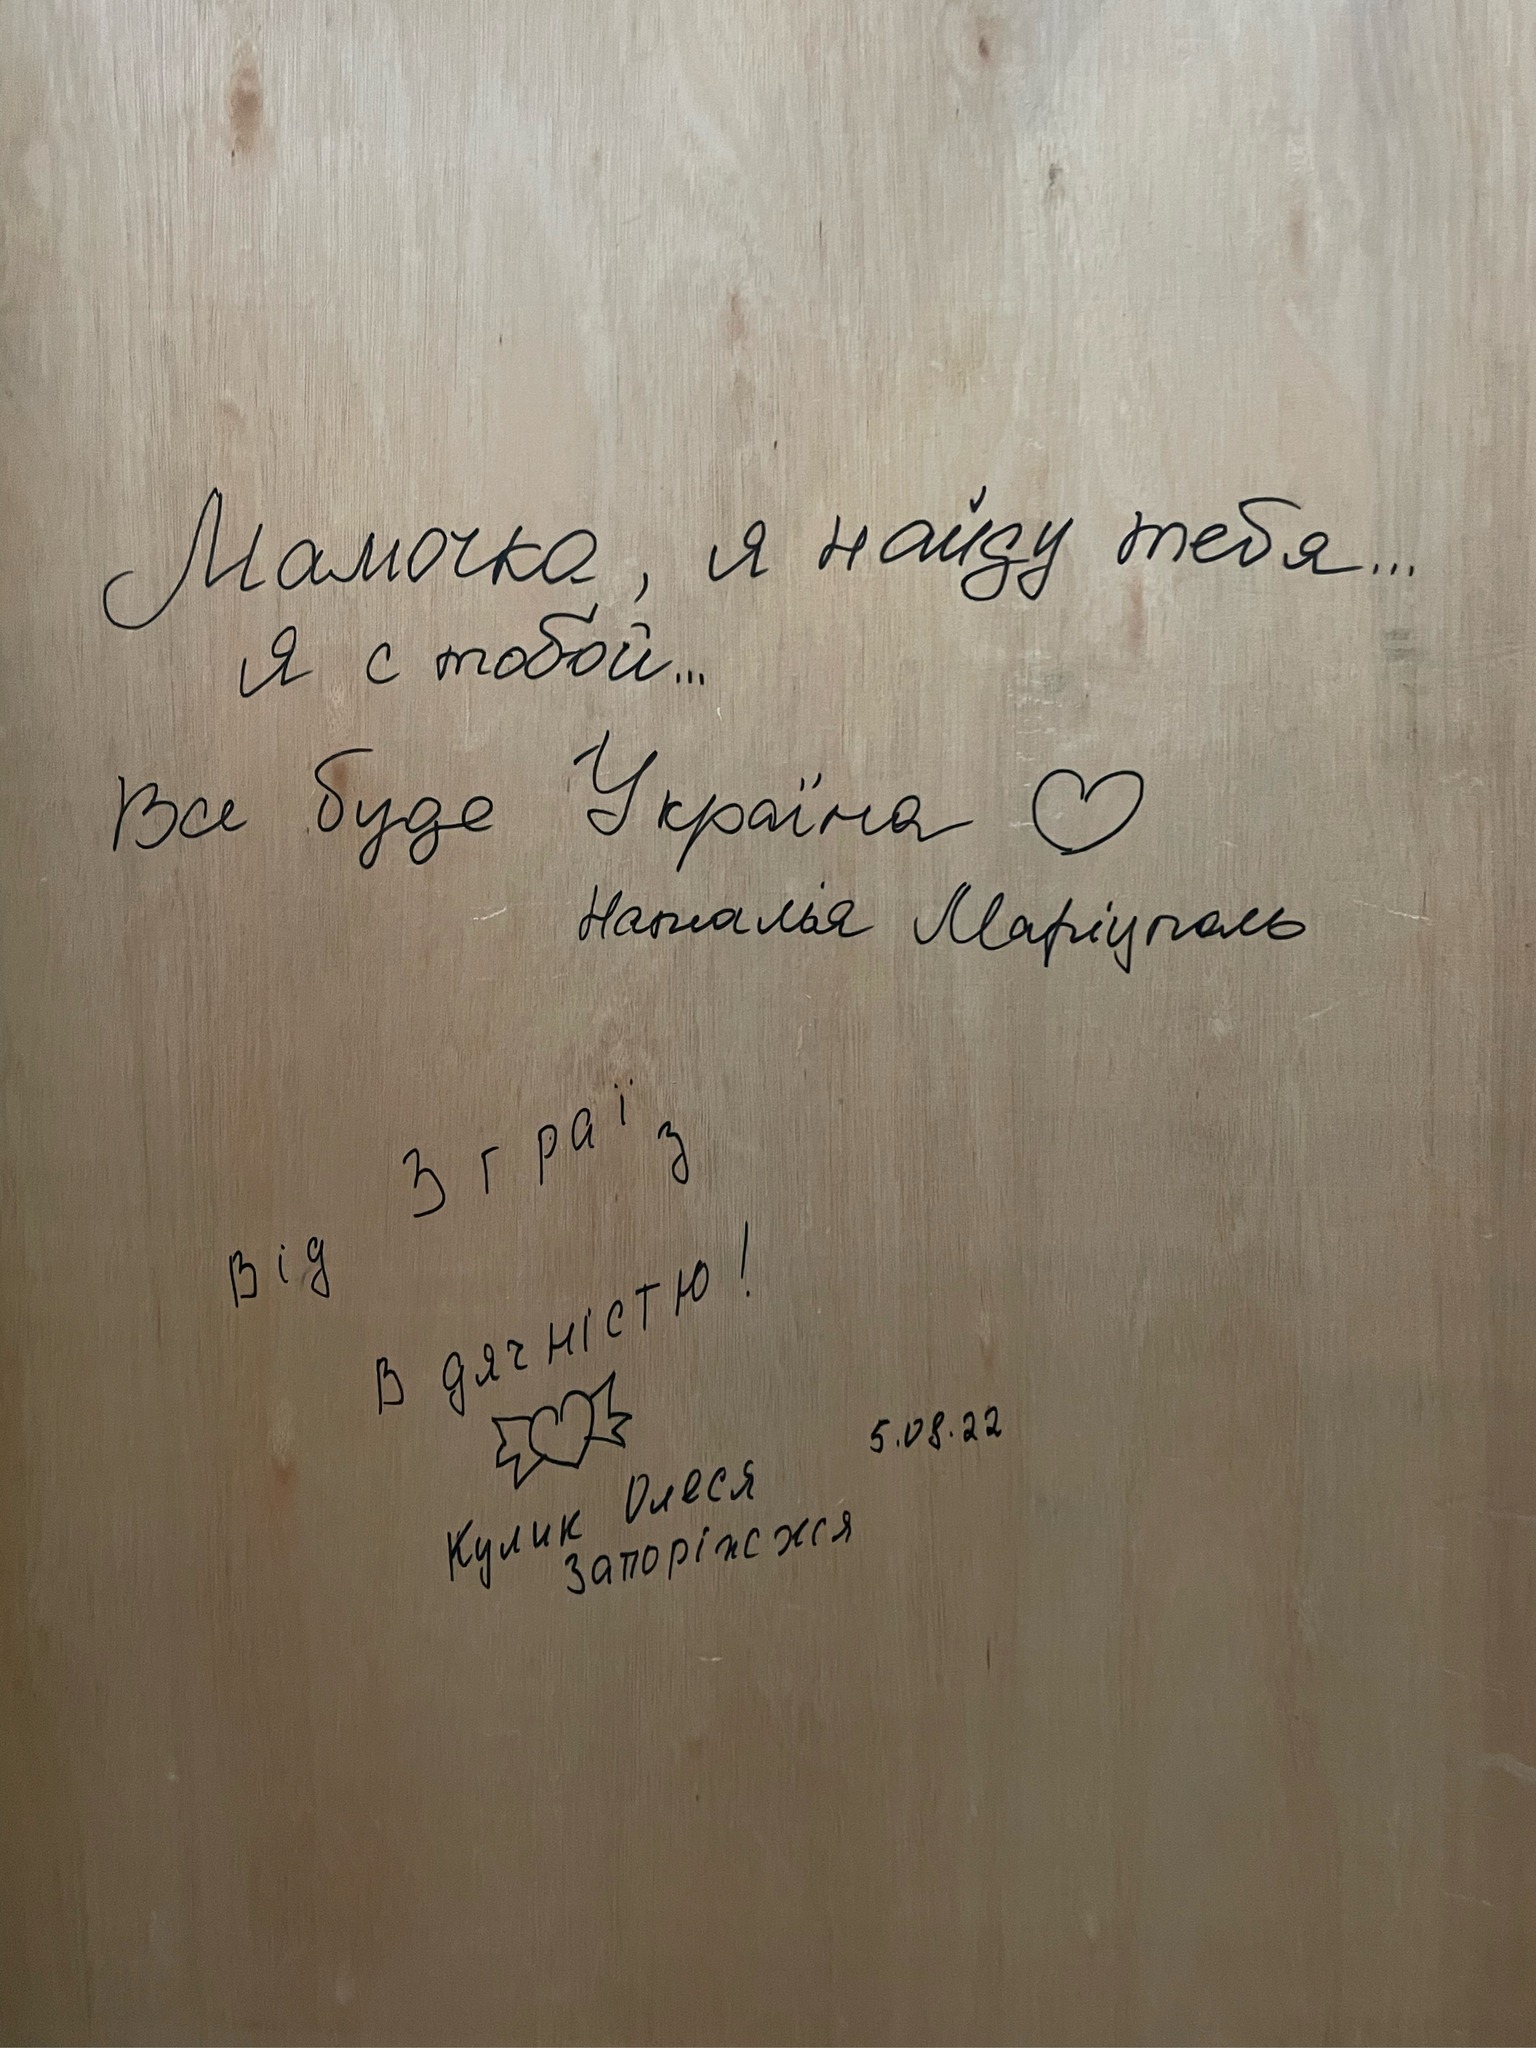 Мамочка, я найду тебя...
я с тобой...
Все буде Україна ♡
Наталья Маріуполь
Від Зграї з
Вдячністю!
Кулик Олеся
Запоріжжя
5.08.22